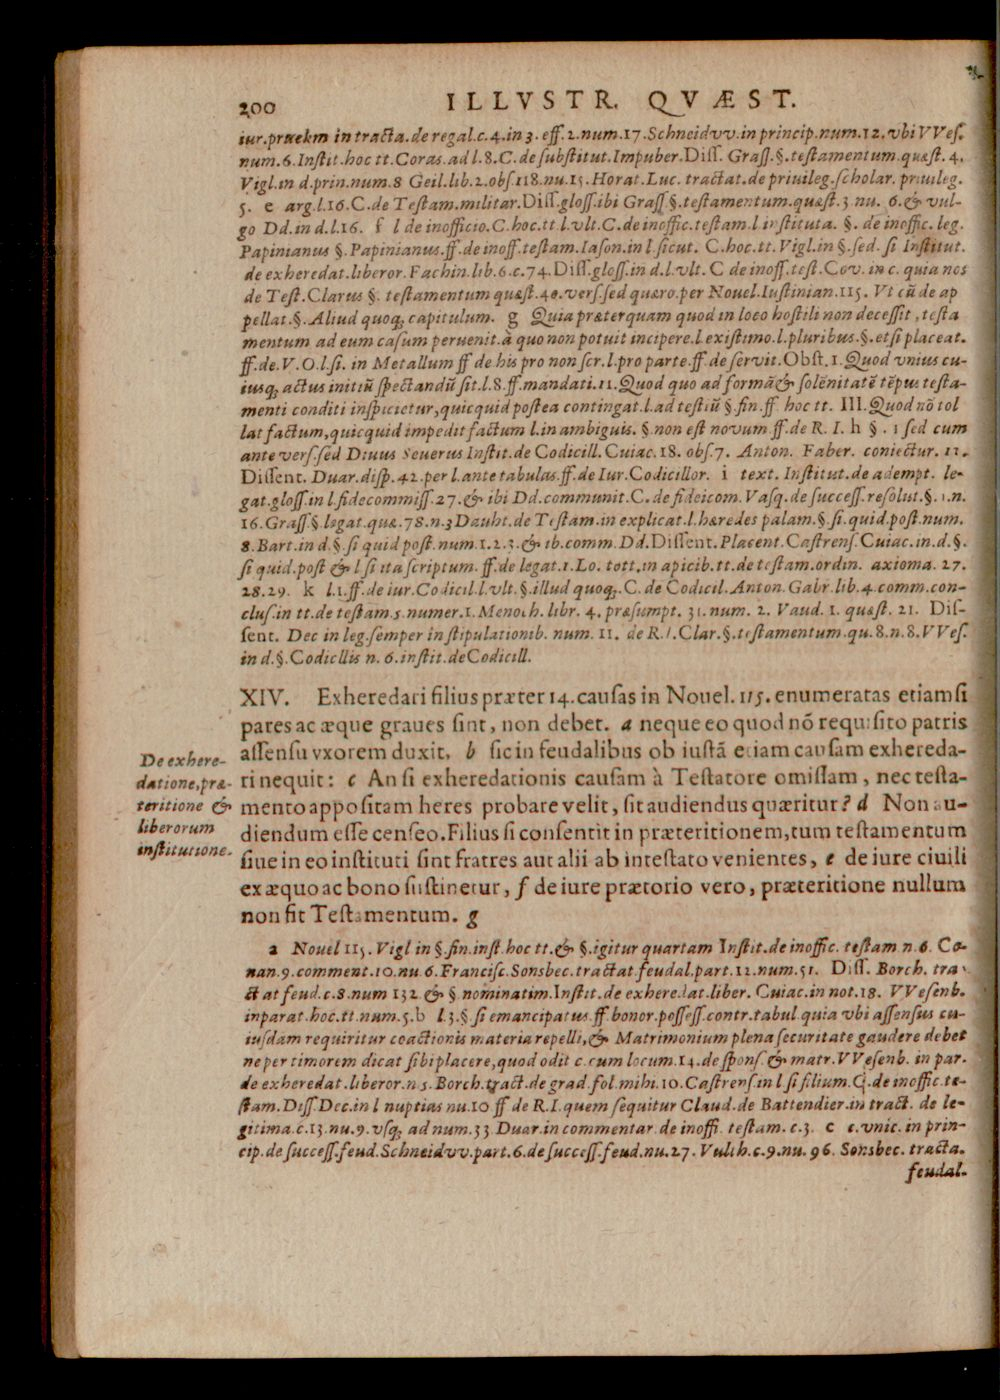 200 ILLVSTR. QVÆST.
iur.pruekm in tracta.de regal.c.4.in 3. eff.2.num.17.Schneidvv.in princip.num.12.vbi VVeſ.
num.6.Inſtit.hoc tt.Coras.ad l.8.C.de ſubſtitut.Impuber.Diſſ. Graſſ.§.teſtamentum.quæſt.4.
Vigl.in d.prin.num.8 Geil.lib.2.obſ.118.nu.15.Horat.Luc. tractat.de priuileg.ſcholar. priuileg.
5. e arg.l.16.C.de Teſtam.militar.Diſſ.gloſſ.ibi Graſſ §.teſtamentum.quæſt.3 nu. 6.& vul-
go Dd.in d.l.16. f l de inofficio.C.hoc.tt l.vlt.C.de inoffic.teſtam.l inſtituta. §. de inoffic. leg.
Papinianus §.Papinianus.ff.de inoff.teſtam.Iaſon.in l.ſicut. C.hoc.tt.Vigl.in §.ſed. ſi Inſtitut.
de exheredat.liberor.Fachin.lib.6.c.74.Diſſ.gloſſ.in d.l.vlt. C de inoff.teſt.Cov. in c. quia nos
de Teſt.Clarus §. teſtamentum quæſt.40.verſ.ſed quæro.per Novel.Iuſtinian.115. Vt cū de ap
pellat.§.Aliud quoq; capitulum. g Quia præterquam quod in loco hoſtili non deceſſit, teſta
mentum ad eum caſum peruenit.à quo non potuit incipere.l exiſtimo.l.pluribus.§.etſi placeat.
ff.de.V.O.l.ſi. in Metallum ff de his pro non ſcr.l.pro parte.ff.de ſervit.Obſt.1.Quod vnius cu-
iusq; actus initiū ſpectandū ſit.l.8.ff.mandati.11.Quod quo ad formā& ſolēnitatē tēpus teſta-
menti conditi inſpicietur,quicquid poſtea contingat.l.ad teſtiū §.fin.ff hoc tt. III.Quod nō tol
lat factum,quicquid impedit factum l.in ambiguis. §.non eſt novum ff.de R. I. h § . 1 ſed cum
ante verſ.ſed Diuus Seuerus Inſtit.de Codicill. Cuiac.18. obſ.7. Anton. Faber. coniectur. 11.
Diſſent. Duar.diſp.42.per l.ante tabulas.ff.de Iur.Codicillor. i text. Inſtitut.de adempt. le-
gat.gloſſ.in l.fidecommiſſ.27.& ibi Dd.communit.C.de fideicom.Vaſq.de ſucceſſ.reſolut.§.1.n.
16.Graſſ.§.legat.quæ.78.n.3 Dauht.de Teſtam.in explicat.l.hæredes palam.§.ſi.quid.poſt.num.
8.Bart.in d.§.ſi quid poſt.num.1.2.3.& ib.comm.Dd.Diſſent.Placent.Caſtrenſ.Cuiac.in.d.§.
ſi quid.poſt & l ſi ita ſcriptum.ff.de legat.1.Lo. tott.in apicib.tt.de teſtam.ordin. axioma. 27.
28.29. k l.1.ff.de iur.Codicil.l.vlt.§.illud quoq;.C. de Codicil.Anton.Gabr.lib.4.comm.con-
cluſ.in tt.de teſtam.5.numer.1.Menoch.libr. 4. præſumpt. 31.num. 2. Vaud. 1. quæſt. 21. Diſ-
ſent. Dec in leg.ſemper in ſtipulationib. num. 11. de R.I.Clar.§.teſtamentum.qu.8.n.8.VVeſ.
in d.§.Codicllis n. 6.inſtit.deCodicill.
XIV. Exheredari filius præter 14.cauſas in Nouel. 115. enumeratas etiamſi
pares ac æque graues ſint, non debet. a neque eo quod nō requiſito patris
aſſenſu vxorem duxit, b ſic in feudalibus ob iuſtā etiam cauſam exhereda-
ri nequit: c An ſi exheredationis cauſam à Teſtatore omiſſam, nec teſta-
mento appoſitam heres probare velit, ſit audiendus quæritur? d Non au-
diendum eſſe cenſeo.Filius ſi conſentit in præteritionem,tum teſtamentum
ſiue in eo inſtituti ſint fratres aut alii ab inteſtato venientes, e de iure ciuili
ex æquo ac bono ſuſtinetur, f de iure prætorio vero, præteritione nullum
non fit Teſtamentum. g
De exhere-
datione,præ-
teritione &
liberorum
inſtitutione.
a Nouel 115. Vigl in §.fin.inſt.hoc tt.& §.igitur quartam Inſtit.de inoffic. teſtam n.6. Co-
nan.9.comment.10.nu.6.Franciſc.Sonsbec.tractat.feudal.part.12.num.51. Diſſ. Borch. tra-
ctat feud.c.8.num 132 & §.nominatim.Inſtit.de exheredat.liber. Cuiac.in not.18. VVeſenb.
in parat.hoc.tt.num.5.b l.3.§ ſi emancipatus.ff bonor.poſſeſſ.contr.tabul.quia vbi aſſenſus cu-
iuſdam requiritur coactionis materia repelli,& Matrimonium plena ſecuritate gaudere debet
ne per timorem dicat ſibi placere,quod odit c.cum locum.14.de ſponſ.& matr.VVeſenb. in par.
de exheredat.liberor.n 5.Borch.tract.de grad.fol.mihi.10.Caſtrenſ.in l.ſi filium.C.de inoffic.te-
ſtam.Diſſ.Dec.in l nuptias nu.10 ff de R.I.quem ſequitur Claud.de Battendier.in tract. de le-
gitima.c.13.nu.9.vſq; ad num.33 Duar.in commentar.de inoffi. teſtam. c.3. c c.vnic. in prin-
cip.de ſucceſſ.feud.Schneidvv.part.6.de ſucceſſ.feud.nu.27. Vulth.c.9.nu. 96. Sonsbec. tracta.
feudal.